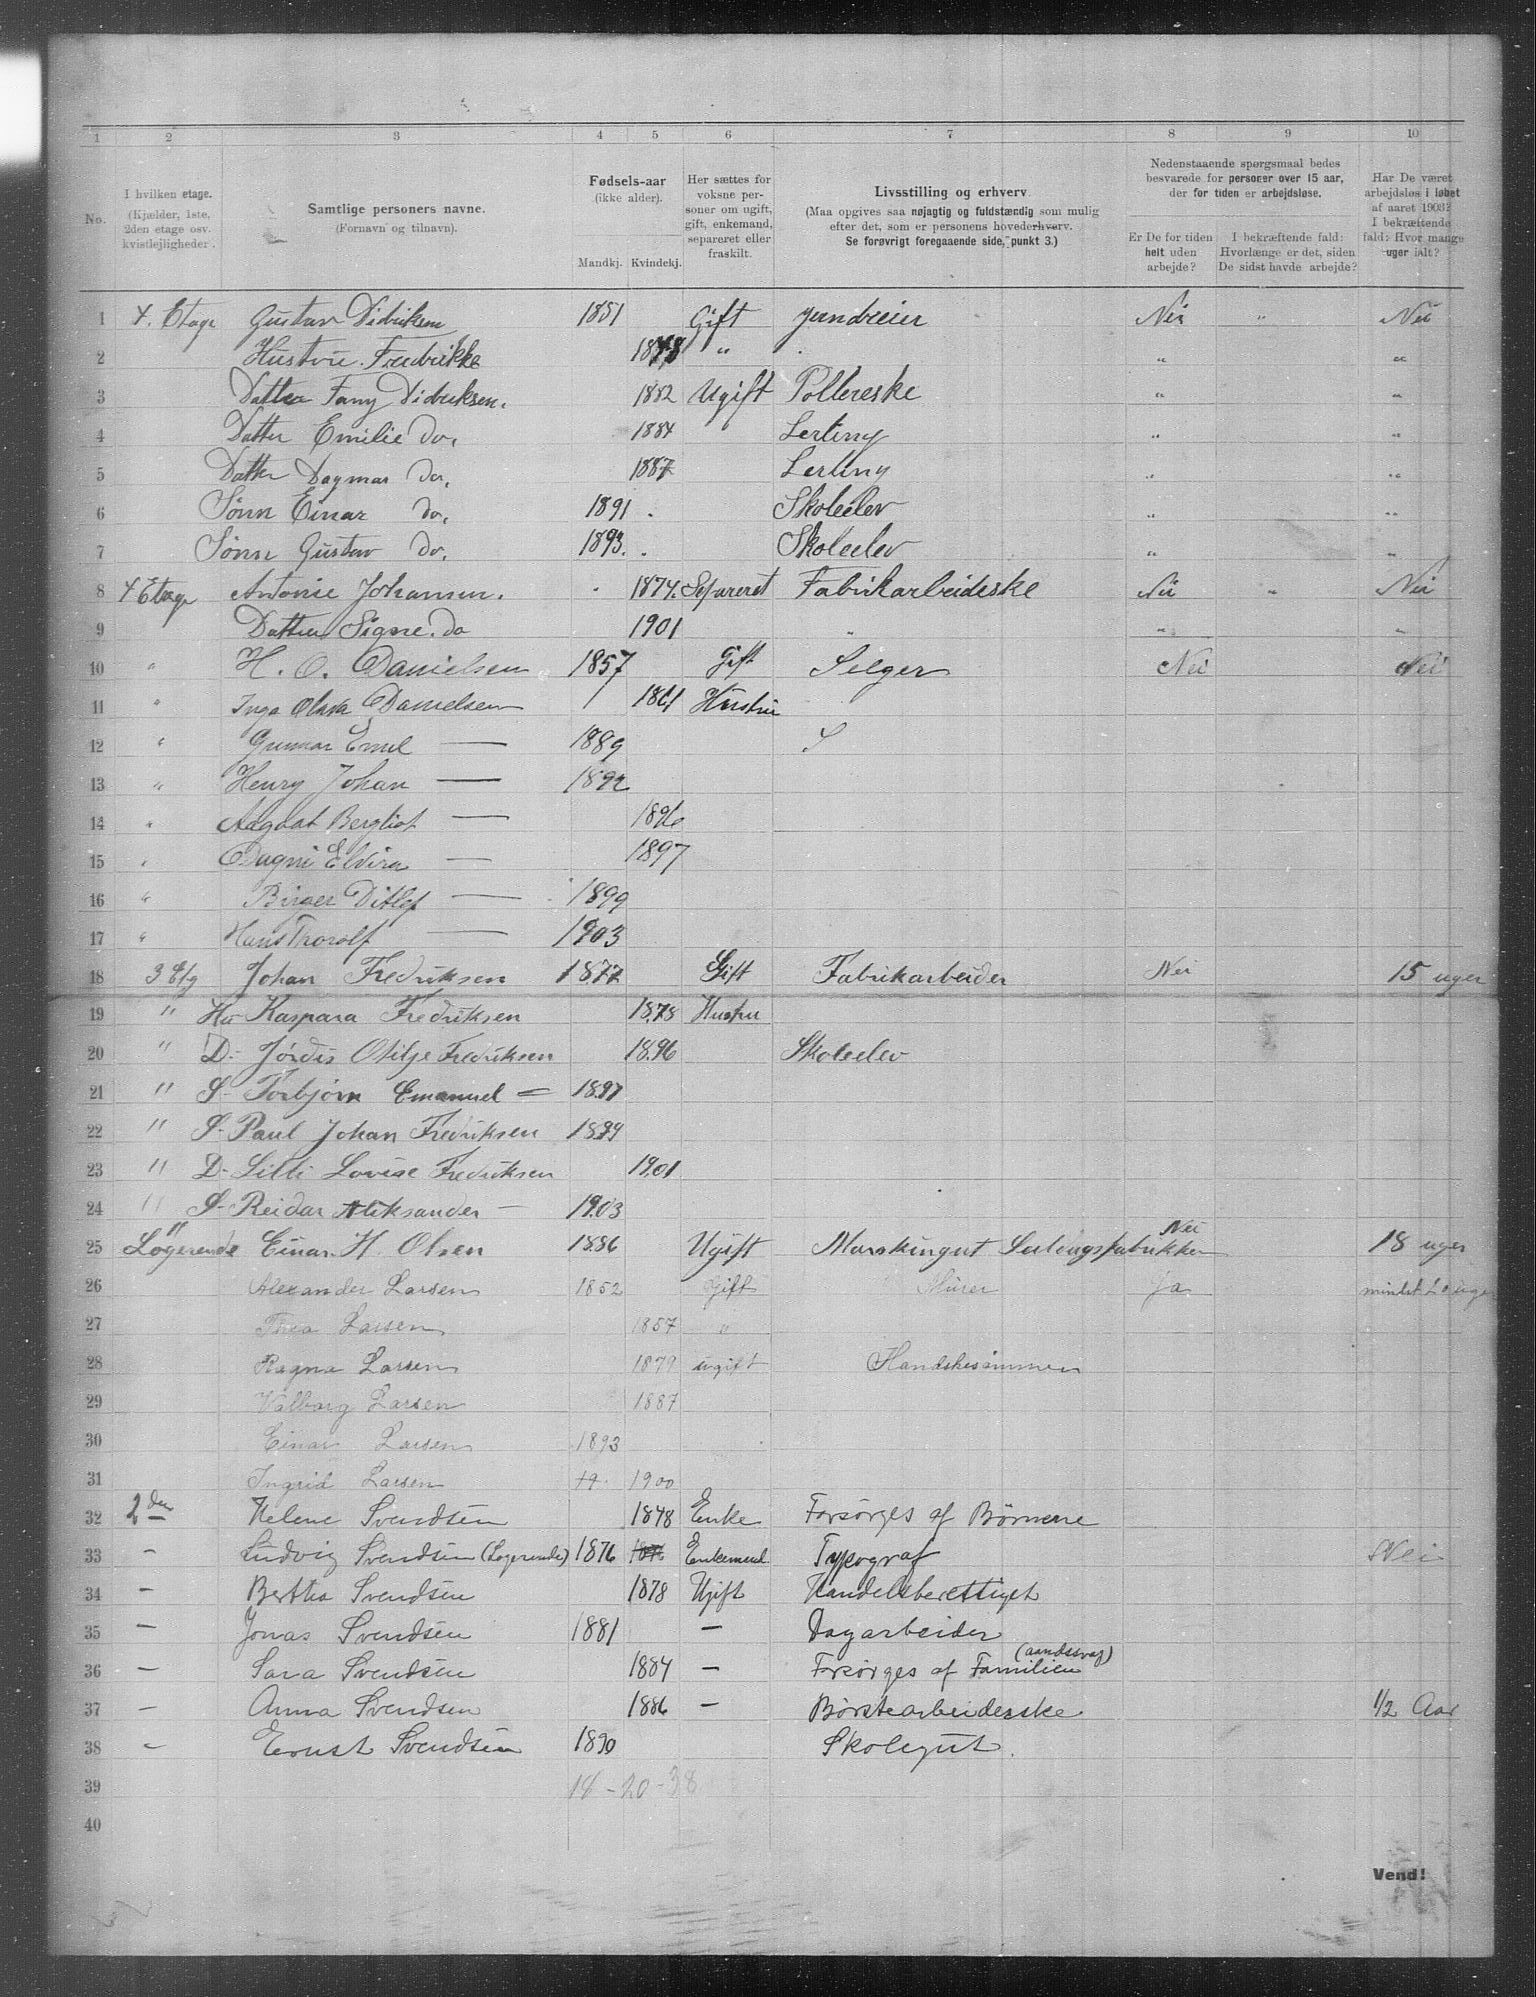 1 2 3 4 5 6 7 8 9 10
No.
I hvilken etage.
(Kjælder, 1ste,
2den etage osv.
kvistlejligheder.
Samtlige personers navne.
(Fornavn og tilnavn).
Fødsels-aar
(ikke alder).
Mandkj. Kvindekj.
Her sættes for
voksne per-
soner om ugift,
gift, enkemand,
separeret eller
fraskilt.
Livsstilling og erhverv.
(Maa opgives saa nøjagtig og fuldstændig som mulig
efter det, som er personens hovederhverv.
Se forøvrigt foregaaende side, punkt 3.)
Nedenstaaende spørgsmaal bedes
besvarede for personer over 15 aar,
der for tiden er arbejdsløse.
Er De for tiden
helt uden
arbejde?
I bekræftende fald:
Hvorlænge er det, siden
De sidst havde arbejde?
Har De været
arbejdsløs i løbet
af aaret 1903?
I bekræftende
fald: Hvor mange
uger ialt?
1 4. Etage Gustav Didriksen 1851 Gift Nei " Nei
2 Hustru Fredrikke " " "
3 Datter Fany Didriksen. 1882 Ugift Pollereske " "
4 Datter Emilie do. 1884 " "
5 Datter Dagmar do. 1887 " "
6 Sønn Einar do. 1891 Skoleelev " "
7 Sønn Gustav do. 1893. Skoleelev " "
8 4 Etage Antonie Johansen. 1874. Separeret Fabrikarbeideske Nei " Nei
9 Datter Signe do 1901 " " "
10 " H. O. Danielsen 1857 Gift Selger Nei Nei
11 " Inga Olava Danielsen 1861 Hustru
12 " Gunnar Emil — 1889 S
13 " Henry Johan — 1892
14 " Aagaat Bergliot — 1896
15 " Dagni Elvira — 1897
16 " Birger Ditlef — 1899
17 " Hans Thorolf — 1903
18 3 Etg Johan Fredriksen 1877 Gift Fabrikarbeider Nei 15 uger
19 " Hu Kaspara Fredriksen 1878 Hustru
20 " D- Jørdis Otilje Fredriksen 1896 Skoleelev
21 " S- Torbjørn Emanuel = 1897
22 " S- Paul Johan Fredriksen 1899
23 " D- Lilli Lovise Fredriksen 1901
24 " S- Reidar Aleksander — 1903
25 " Logerende Einar H. Olsen 1886 Ugift Nei 18 uger
26 Alexander Larsen 1852 Gift Murer Ja
27 Thea Larsen 1857 "
28 Ragna Larsen 1879 ugift
29 Valborg Larsen 1887
30 Einar Larsen 1893
31 Ingrid Larsen 1900
32 2den Helene Svendsen 1848 Enke Forsørges af Børnene
33 – Ludvig Svendsen (Logerende) 1876 Enkemand Typograf Nei
34 – Bertha Svendsen 1878 Ugift Handelsberettiget
35 – Jonas Svendsen 1881 – Dagarbeider
36 – Sara Svendsen 1884 – Forsørges af Familien (aandssvag)
37 – Anna Svendsen 1886 – Børstearbeiderske 1/2 Aar
38 – Ernst Svendsen 1890 Skolegut.
39 18-20-38
40
Vend!